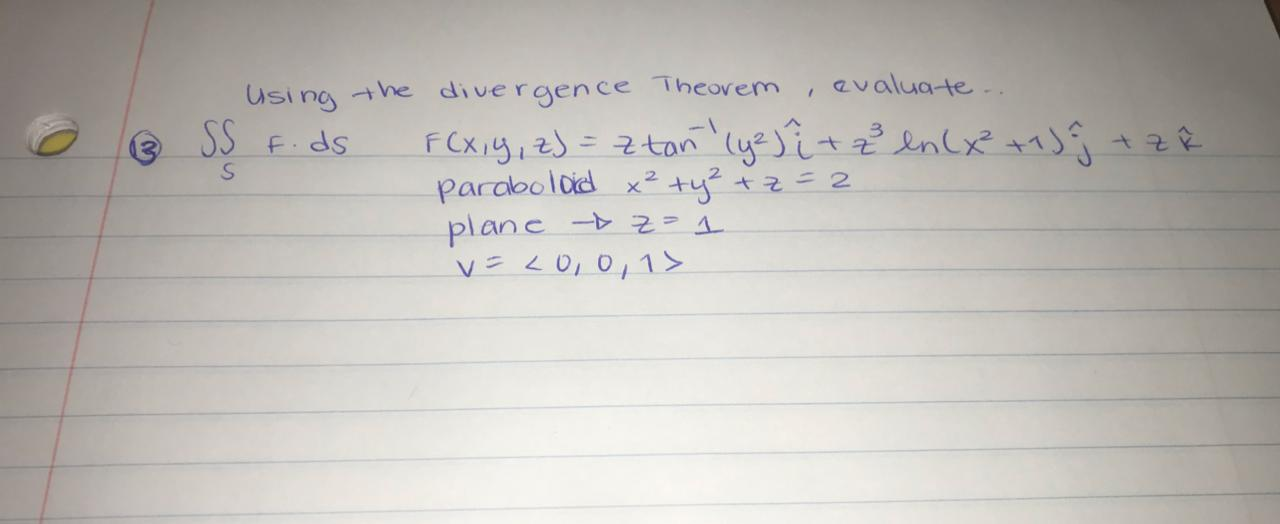 Using the divergence Theorem, evaluate..
③ ∬ F.ds F(x,y,z) = z tan⁻¹(y²)î + z³ ln(x²+1)ĵ + z k̂
S
paraboloid x² + y² + z = 2
plane → z = 1
v = <0, 0, 1>